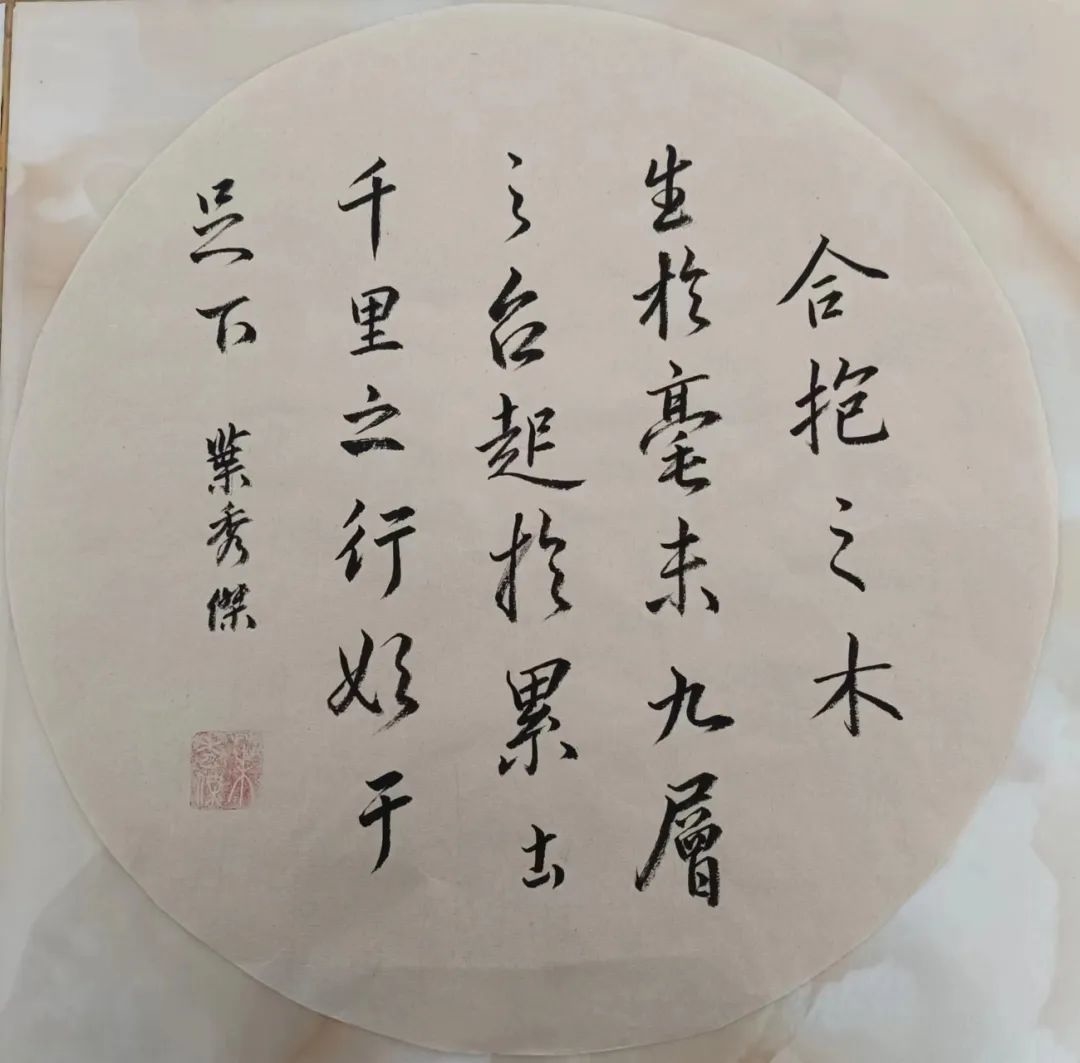 合抱之木
生於毫末九層
之台起於累土
千里之行始于
足下 業秀傑